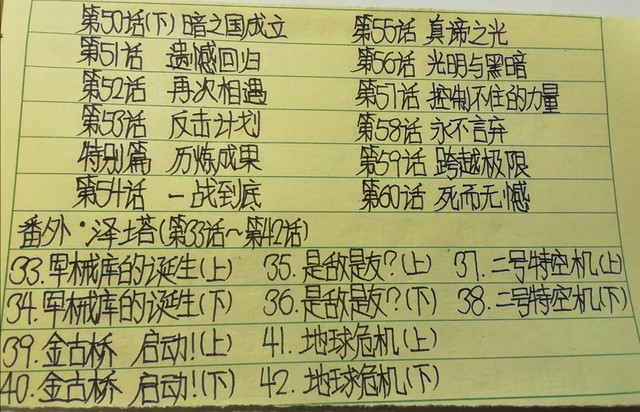 第50话(下) 暗之国成立 第55话 真谛之光
第51话 遗憾回归 第56话 光明与黑暗
第52话 再次相遇 第57话 控制不住的力量
第53话 反击计划 第58话 永不言弃
特别篇 历炼成果 第59话 跨越极限
第54话 一战到底 第60话 死而无憾
番外·泽塔(第33话~第42话)
33.军械库的诞生(上) 35.是敌是友?(上) 37.二号特空机(上)
34.军械库的诞生(下) 36.是敌是友?(下) 38.二号特空机(下)
39.金古桥 启动!(上) 41.地球危机(上)
40.金古桥 启动!(下) 42.地球危机(下)